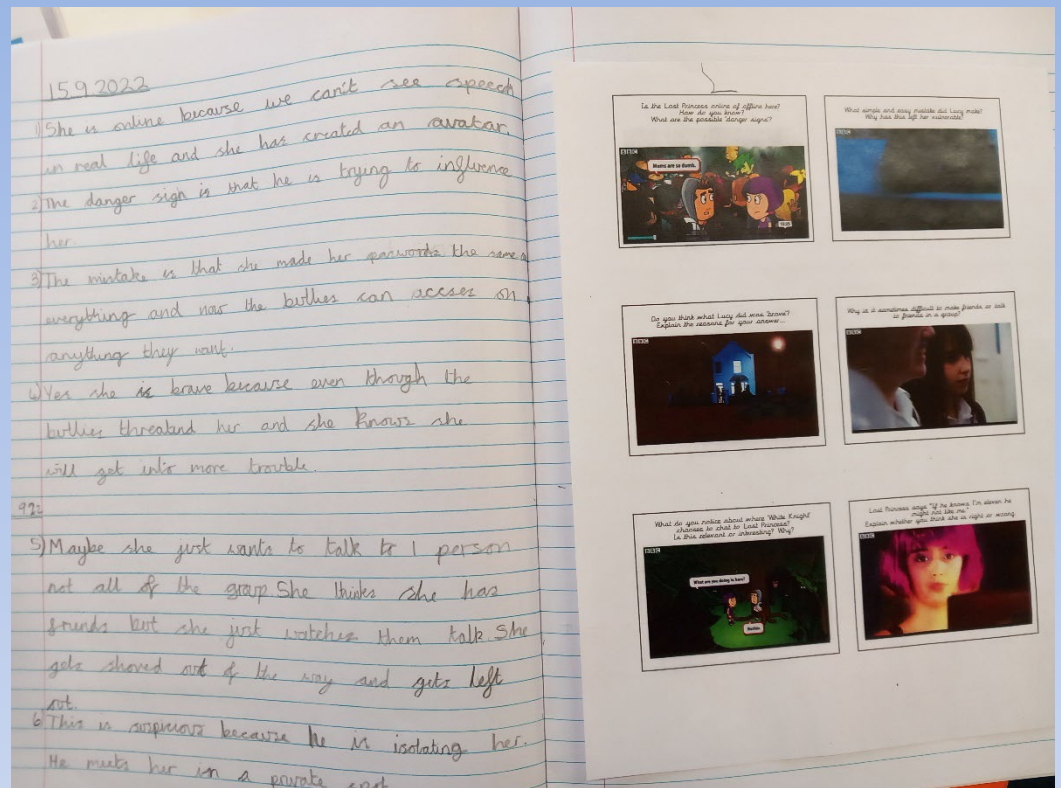 15.9.2022
1) She is online because we can't see speech
in real life and she has created an avatar.
2) The danger sign is that he is trying to influence
her.
3) The mistake is that she made her passwords the same
everything and now the bullies can accses on
anything they want.
4) Yes she is brave because even though the
bullies threatand her and she knows she
will get into more trouble.
5) Maybe she just wants to talk to 1 person
not all of the group. She thinks she has
friends but she just watches them talk. She
gets shoved out of the way and gets left
out.
6) This is suspicious because he is isolating her.
He meets her in a private spot
Is the Last Princess online of offline here?
How do you know?
What are the possible 'danger signs'?
BBC
Moms are so dumb.
What simple and easy mistake did Lucy make?
Why has this left her vulnerable?
BBC
Do you think what Lucy did was 'brave'?
Explain the reasons for your answer...
BBC
Why is it sometimes difficult to make friends or talk
to friends in a group?
BBC
What do you notice about where 'White Knight'
chooses to chat to Last Princess?
Is this relevant or interesting? Why?
BBC
What are you doing in here?
Last Princess says "If he knows I'm eleven he
might not like me."
Explain whether you think she is right or wrong.
BBC